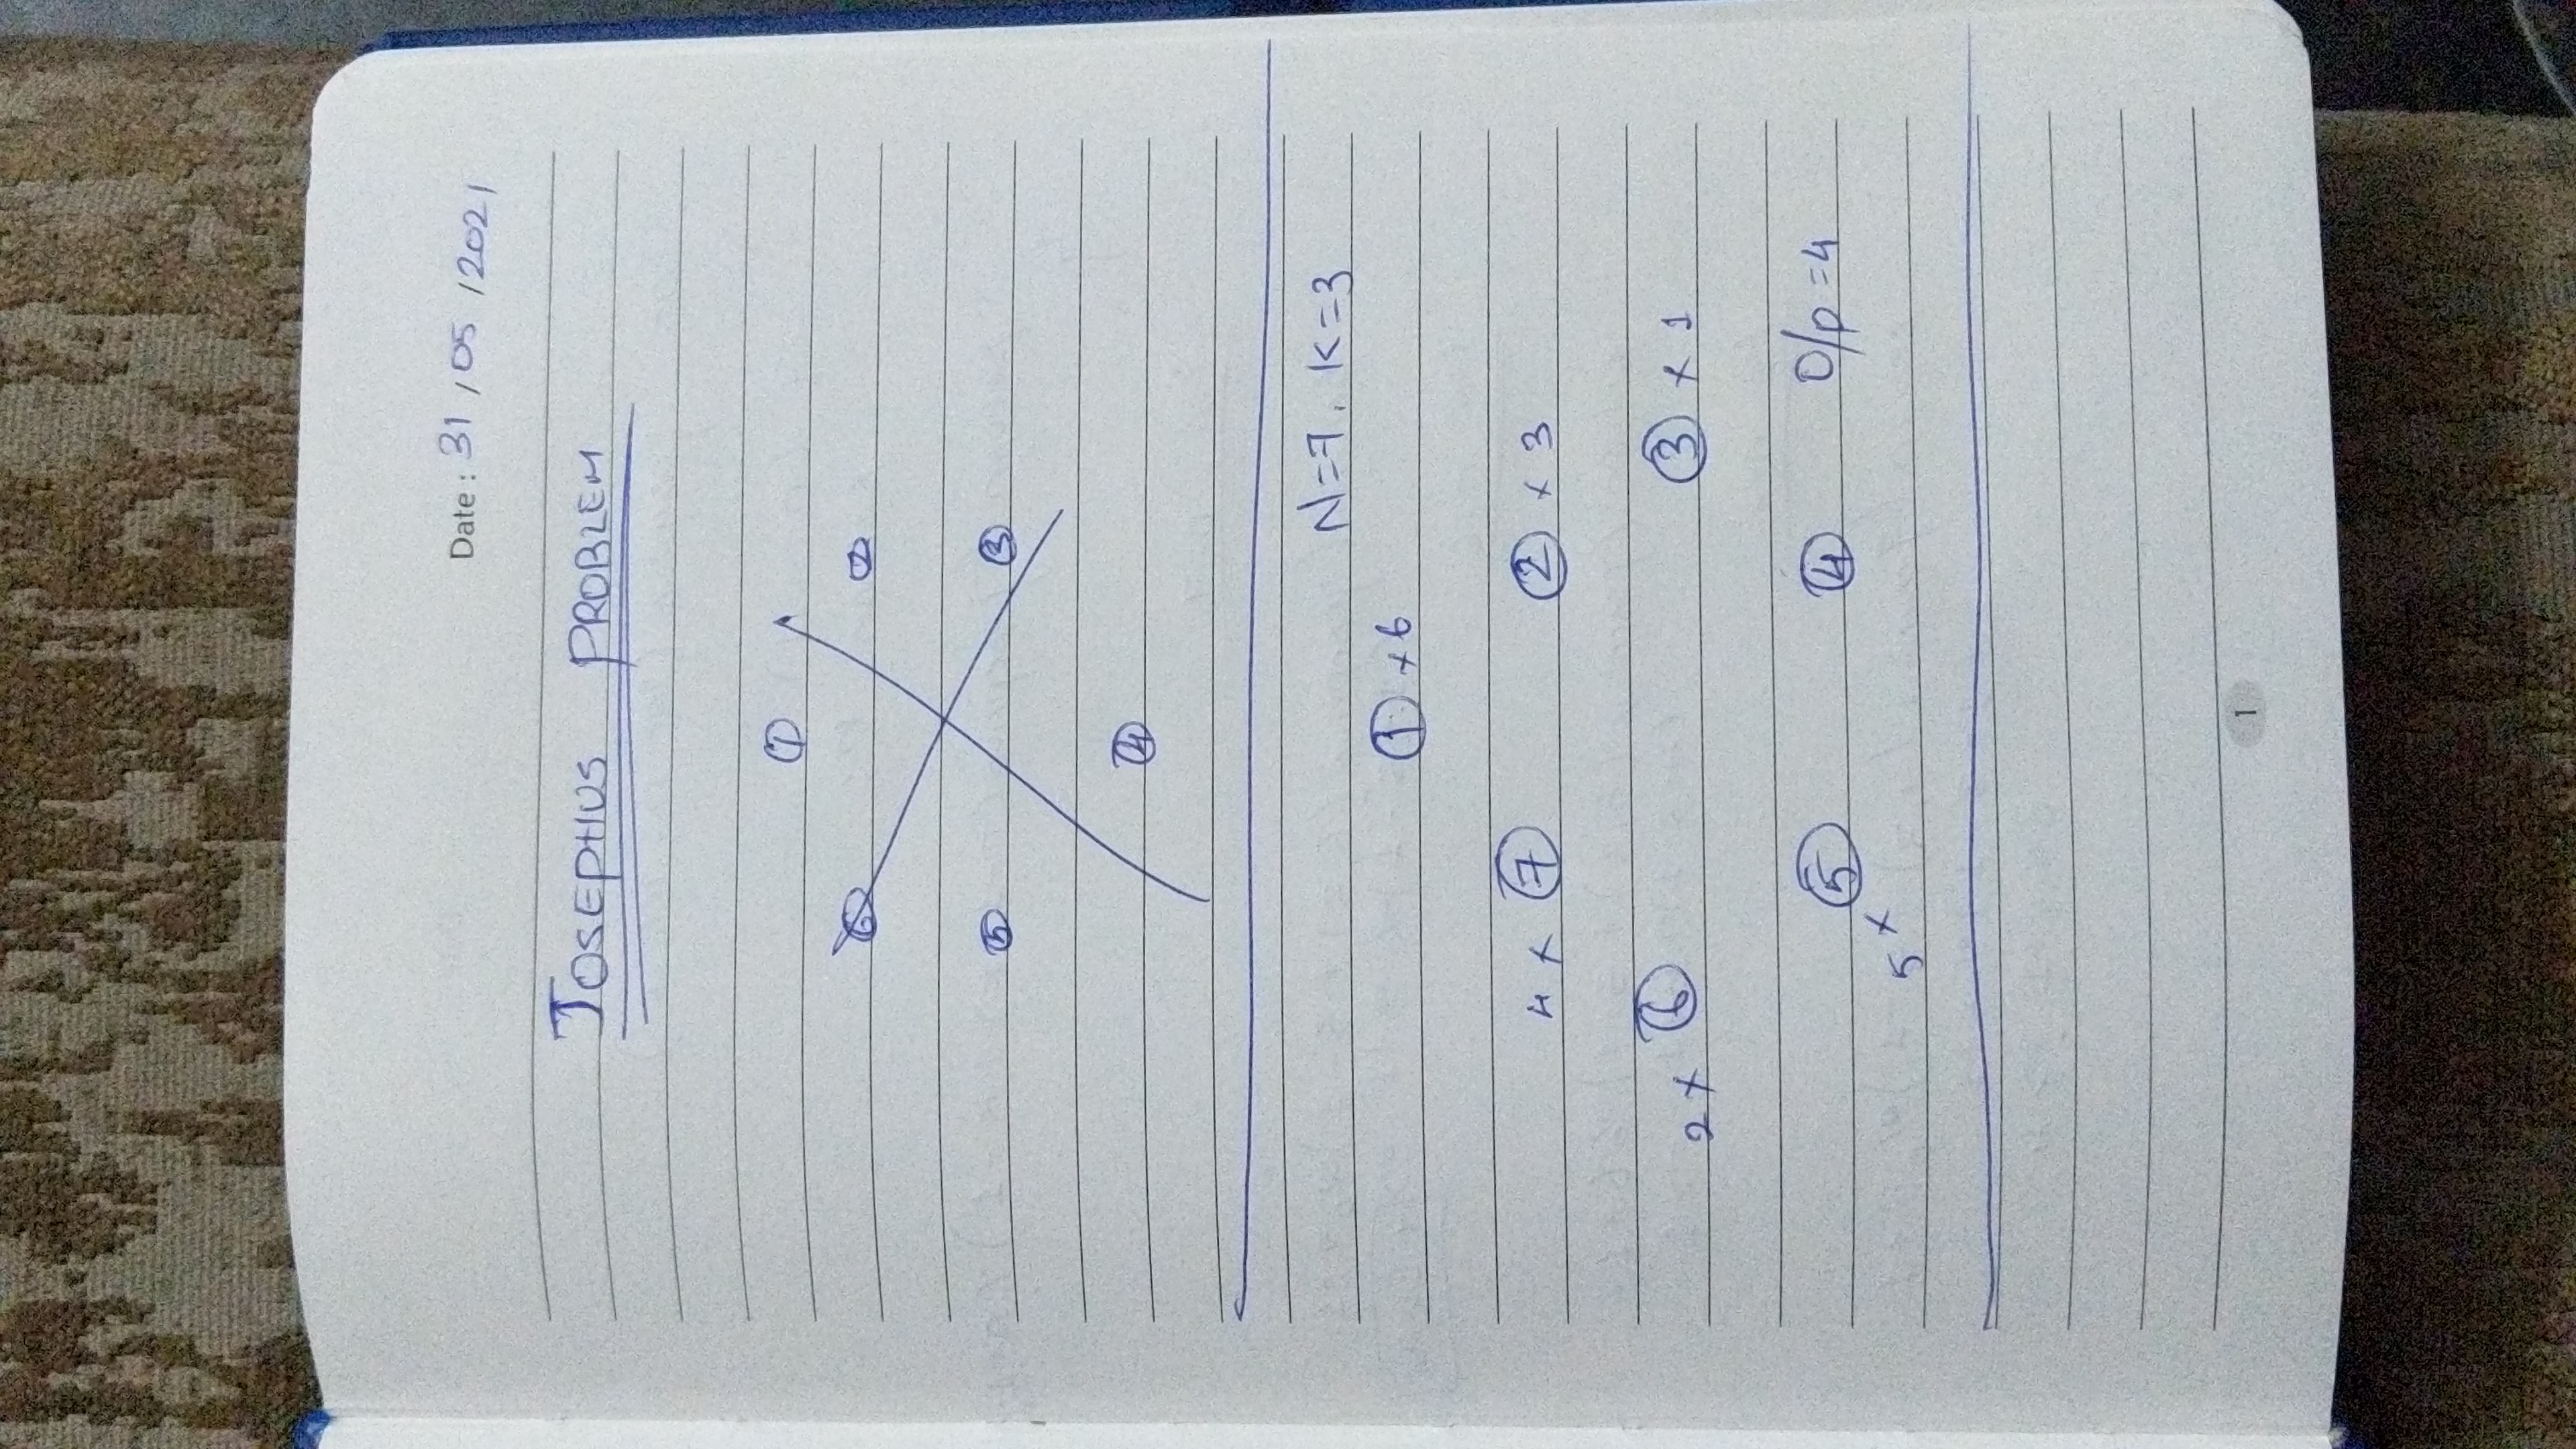 Date : 31 / 05 / 2021
JOSEPHUS PROBLEM
1
6 2
5 3
4
N=7, K=3
1 x 6
4 x 7 2 x 3
2 x 6 3 x 1
5 4 O/p = 4
5 x
1